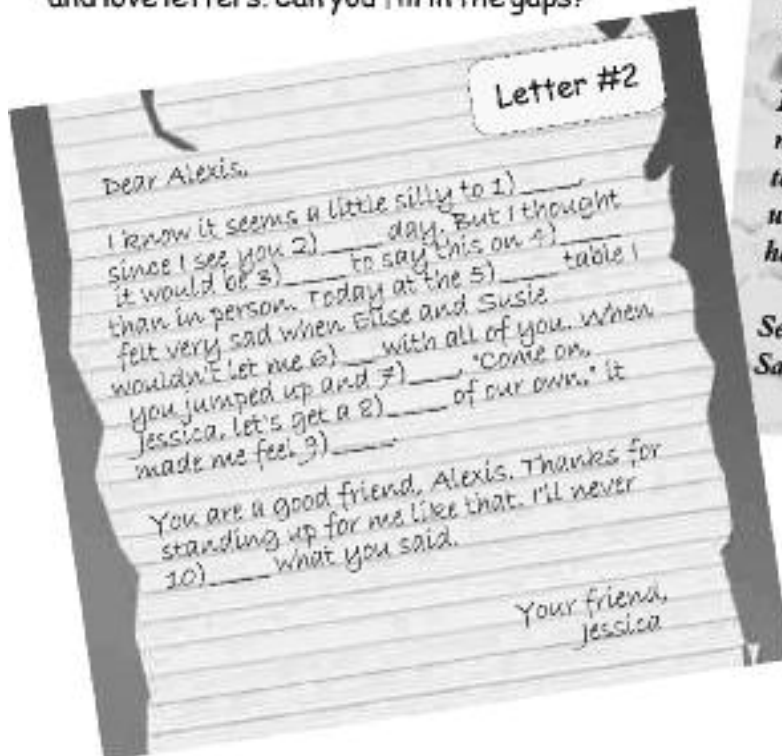 and love letters. Can you fill in the gaps?
Letter #2
Dear Alexis,
I know it seems a little silly to 1)____,
since I see you 2)____ day. But I thought
it would be 3)____ to say this on 4)____
than in person. Today at the 5)____ table I
felt very sad when Elise and Susie
wouldn't let me 6)___ with all of you. When
you jumped up and 7)____, "Come on,
Jessica, let's get a 8)____ of our own," it
made me feel 9)____.
You are a good friend, Alexis. Thanks for
standing up for me like that. I'll never
10)____ what you said.
Your friend,
Jessica